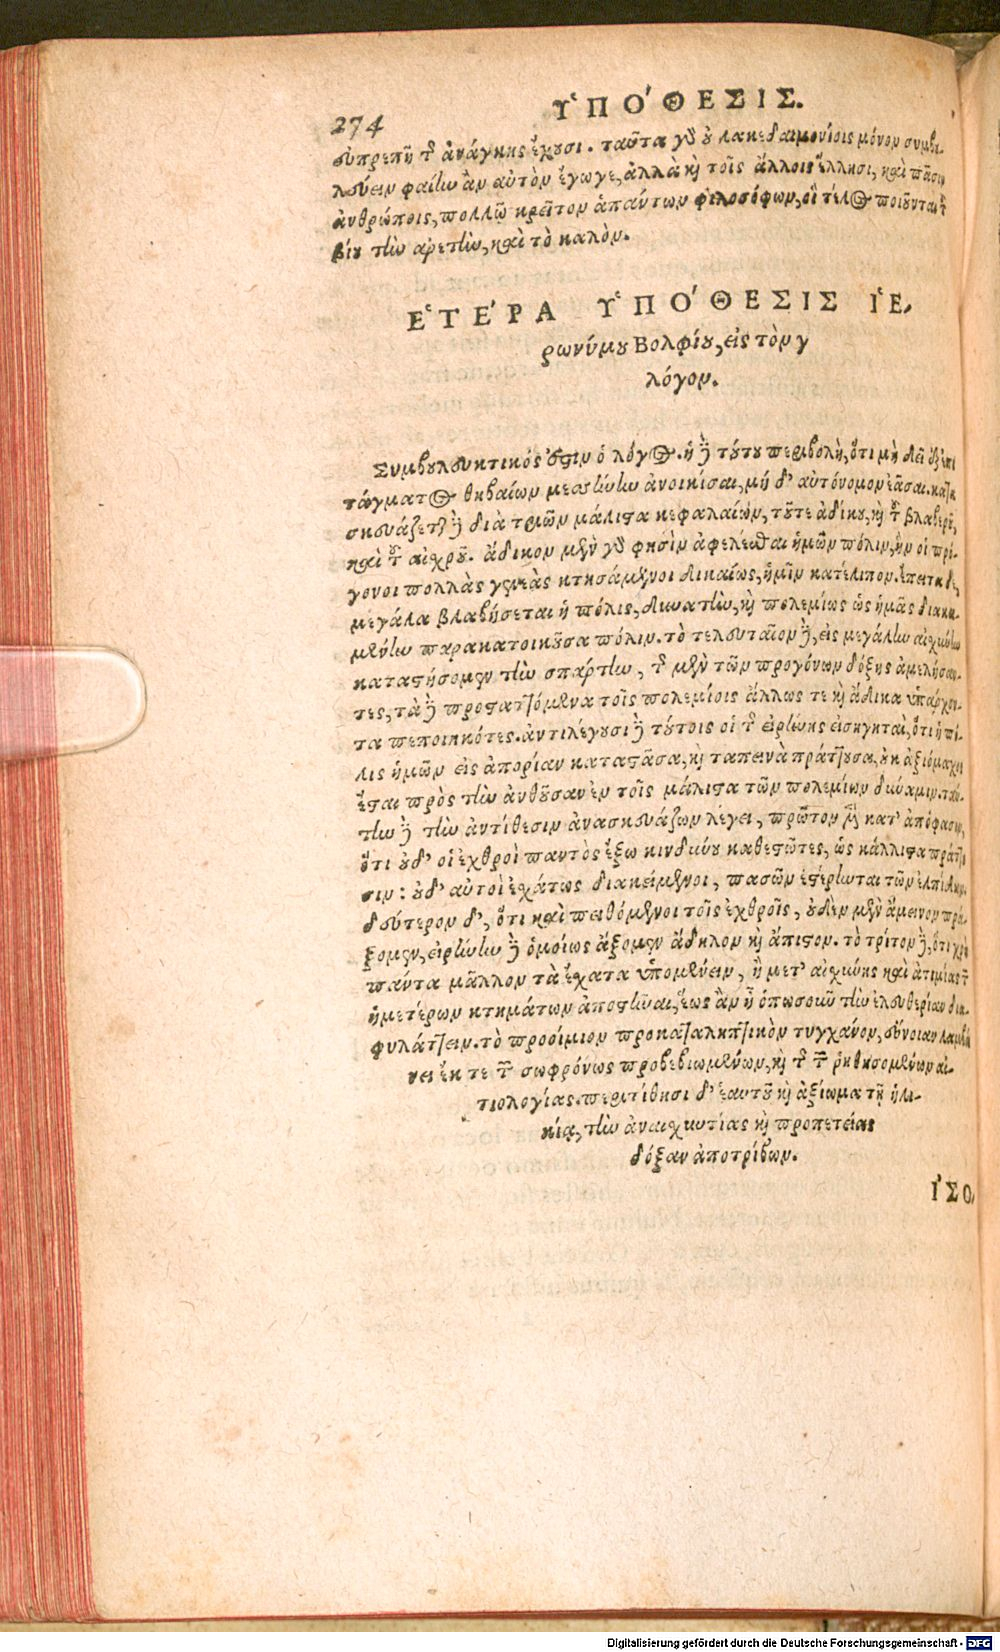 274
ΥΠΟΘΕΣΙΣ.
εὐπρεπῆ τῆς ἀνάγκης ἔχουσι. ταῦτα γὰρ οὐ λακεδαιμονίοις μόνον συμβε-
λεύειν φαίην ἂν αὐτὸν ἔγωγε, ἀλλὰ καὶ τοῖς ἄλλοις ἕλλησι, καὶ πᾶσιν
ἀνθρώποις, πολλῷ κρεῖττον ἁπάντων φιλοσόφων, οἳ τέλος ποιοῦνται τοῦ
βίου τὴν ἀρετὴν, καὶ τὸ καλὸν.
ἙΤΈΡΑ ὙΠΌΘΕΣΙΣ ἹΕ-
ρωνύμου Βολφίου, εἰς τὸν γ
λόγον.
Συμβουλευτικός ἐστιν ὁ λόγος. ἡ δὲ τούτου περιβολὴ, ὅτι μὴ δεῖ ἐξ ἐπι
τάγματος θηβαίων μεσσήνην ἀνοικίσαι, μή δ' αὐτόνομον ἐᾶσαι. κατα
σκευάζεται δὲ διὰ τριῶν μάλιστα κεφαλαίων, τοῦτε ἀδίκου, καὶ τοῦ βλαβεροῦ,
καὶ τοῦ αἰχροῦ. ἄδικον μὲν γὰρ φησὶν ἀφελέσθαι ἡμῶν πόλιν, ἣν οἱ πρό-
γονοι πολλὰς γενεὰς κτησάμενοι δικαίως, ἡμῖν κατέλιπον. ἔπειτα δὲ,
μεγάλα βλαβήσεται ἡ πόλις, δυνατὴν, καὶ πολεμίως ὡς ἡμᾶς διακει-
μένην παρακατοικοῦσα πόλιν. τὸ τελευταῖον δὲ, εἰς μεγάλην αἰχύνην
καταστήσομεν τὴν σπάρτην, τῆς μὲν τῶν προγόνων δόξης ἀμελήσαν-
τες, τὰ δὲ προσταττόμενα τοῖς πολεμίοις ἄλλως τε καὶ ἄδικα ὑπάρχον-
τα πεποιηκότες. ἀντιλέγουσι δὲ τούτοις οἱ τῆς εἰρήνης εἰσηγηταὶ, ὅτι ἡ πό-
λις ἡμῶν εἰς ἀπορίαν καταστᾶσα, καὶ ταπεινὰ πράττουσα, οὐκ ἀξιόμαχος
ἔσται πρὸς τὴν ἀνθοῦσαν ἐν τοῖς μάλιστα τῶν πολεμίων δύναμιν. ταύ-
την δὲ τὴν ἀντίθεσιν ἀνασκευάζων λέγει, πρῶτον μὲν κατ' ἀπόφασιν,
ὅτι οὐδ' οἱ ἐχθροὶ παντὸς ἔξω κινδύνου καθεστῶτες, ὡς κάλλιστα πράττου
σιν: οὐδ' αὐτοὶ ἐχάτως διακείμενοι, πασῶν ἐστέρηνται τῶν ἐλπίδων.
δεύτερον δ', ὅτι καὶ πειθόμενοι τοῖς ἐχθροῖς, οὐδὲν μὲν ἄμεινον πρά-
ξομεν, εἰρήνην δὲ ὁμοίως ἄξομεν ἄδηλον καὶ ἄπιστον. τὸ τρίτον δὲ, ὅτι χρὴ
πάντα μᾶλλον τὰ ἔχατα ὑπομένειν, ἢ μετ' αἰχύνης καὶ ἀτιμίας τῶν
ἡμετέρων κτημάτων ἀποστῆναι, ἕως ἂν ᾖ ὁπωσοῦν τὴν ἐλευθερίαν δια-
φυλάττειν. τὸ προοίμιον προκαταληπτικὸν τυγχάνον, εὔνοιαν λαμβά
νει ἔκ τε τῶν σωφρόνως προβεβιωμένων, καὶ τῆς τῶν ῥηθησομένων αἰ-
τιολογίας. περιτίθησι δ' ἑαυτοῦ καὶ ἀξίωμα τῇ ἡλι-
κίᾳ, τὴν ἀναιχυντίας καὶ προπετείας
δόξαν ἀποτρίβων.
ἸΣΟ-
Digitalisierung gefördert durch die Deutsche Forschungsgemeinschaft - DFG